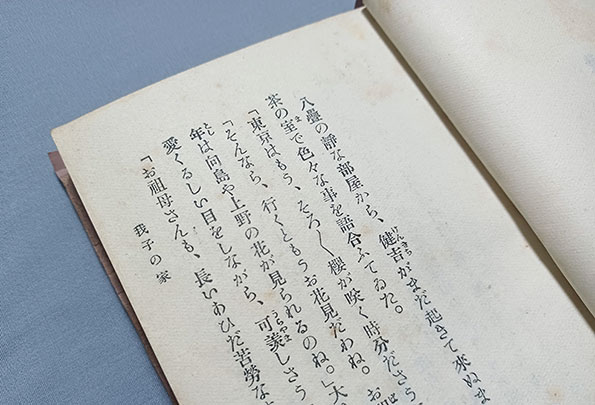 八疊の靜な部屋から、健吉がまだ起きて來ぬま
茶の室で色々な事を語合ふてゐた。
「東京はもう、そろ〱櫻が咲く時分ださう
「そんなら、行くともうお花見だわね。」大
年は向島や上野の花が見られるのね。」
愛くるしい目をしながら、可羨しさう
「お祖母さんも、長いあひだ苦勞な
我子の家